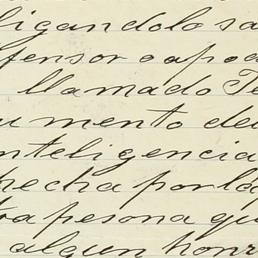 ligandolo sa
fensor o apod
llamado Te
umento de
nteligencia
hecha por la
tra pesona qu
algun honr